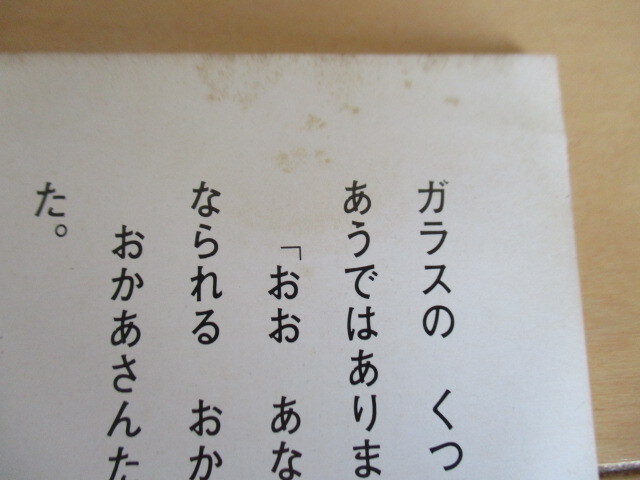 ガラスの　くつ
あうではありま
「おお　あな
なられる　おか
おかあさんた
た。